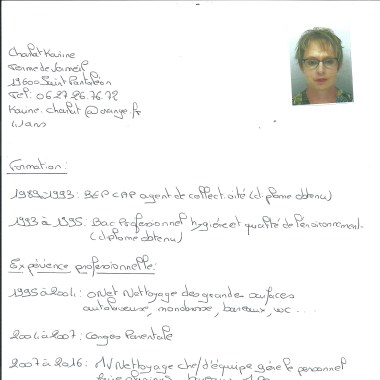 Charlat Karine
Ferme de Jameil
19600 Saint Pantaléon
Tel: 06.27.26.76.72
Karine.charlat@orange.fr
ans
Formation:
1989-1993: BEP CAP agent de collectivité (diplome obtenu)
1993 à 1995: Bac Professionnel hygiène et qualité de l'environnement.
(diplome obtenu)
Expérience professionnelle:
1995 à 2004: ONet Nettoyage des grandes surfaces
autolaveuse, monobrosse, bureaux, wc ...
2004 à 2007: Conges Parentale
2007 à 2016: Nettoyage chef d'équipe gère le personnel